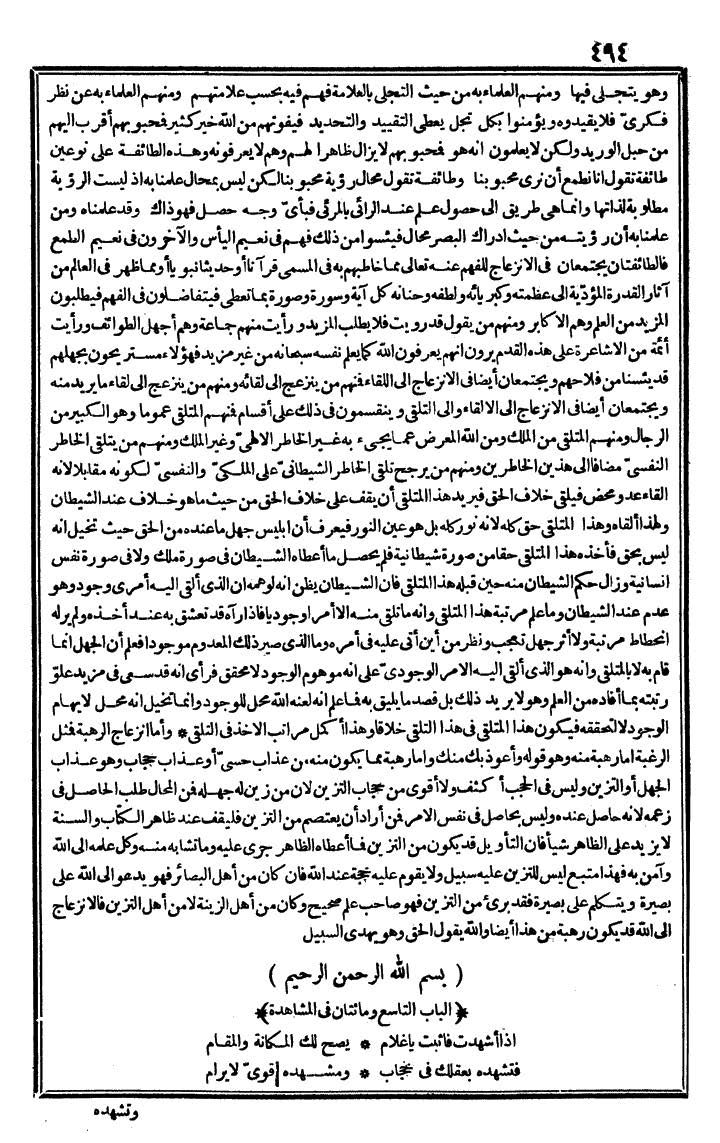 ٤٩٤
وهو يتجلى فيها ومنهم العلماء به من حيث التجلى بالعلامة فهم فيه بحسب علامتهم ومنهم العلماء به عن نظر
فكرىّ فلا يقيدوه ويؤمنوا بكل تجل يعطى التقييد والتحديد فيفوتهم من الله خير كثير فمحبوبهم أقرب اليهم
من حبل الوريد ولكن لا يعلمون انه هو فمحبوبهم لا يزال ظاهرا لهم وهم لا يعرفونه وهذه الطائفة على نوعين
طائفة تقول انا نطمع أن نرى محبوبنا وطائفة تقول محال رؤية محبوبنا لكن ليس بمحال علمنا به اذ ليست الرؤية
مطلوبة لذاتها وانما هى طريق الى حصول علم عند الرائى بالمرئى فبأىّ وجه حصل فهو ذاك وقد علمناه ومن
علمنا به أن رؤيته من حيث ادراك البصر محال فيئسوا من ذلك فهم فى نعيم اليأس والآخرون فى نعيم الطمع
فالطائفتان يجتمعان فى الانزعاج للفهم عنه تعالى مما خاطبهم به فى المسمى قرآنا أو حديثا نبويا أو مما ظهر فى العالم من
آثار القدرة المؤدّية الى عظمته وكبريائه ولطفه وحنانه كل آية وسورة وصورة بما تعطى فيتفاضلون فى الفهم فيطلبون
المزيد من العلم وهم الاكابر ومنهم من يقول قد رويت فلا يطلب المزيد ورأيت منهم جماعة وهم أجهل الطوائف ورأيت
أئمة من الاشاعرة على هذه القدم يرون انهم يعرفون الله كما يعلم نفسه سبحانه من غير مزيد فهؤلاء مستريحون بجهلهم
قد يئسنا من فلاحهم ويجتمعان أيضا فى الانزعاج الى اللقاء فنهم من ينزعج الى لقائه ومنهم من ينزعج الى لقاء ما يريد منه
ويجتمعان أيضا فى الانزعاج الى الالقاء والى التلقى وينقسمون فى ذلك على أقسام فنهم المتلقى عموما وهو الكبير من
الرجال ومنهم المتلقى من الملك ومن الله المعرض عما يجىء به غير الخاطر الالهىّ وغير الملك ومنهم من يتلقى الخاطر
النفسىّ مضافا الى هذين الخاطرين ومنهم من يرجح تلقى الخاطر الشيطانىّ على الملكىّ والنفسىّ لكونه مقابلا لانه
القاء عدو محض فيلقى خلاف الحق فيريد هذا المتلقى أن يقف على خلاف الحق من حيث ما هو خلاف عند الشيطان
ولهذا ألقاه وهذا المتلقى حق كله لانه نور كله بل هو عين النور فيعرف أن ابليس جهل ما عنده من الحق حيث تخيل انه
ليس بحق فأخذه هذا المتلقى حقا من صورة شيطانية فلم يحصل ما أعطاه الشيطان فى صورة ملك ولا فى صورة نفس
انسانية وزال حكم الشيطان منه حين قبله هذا المتلقى فان الشيطان يظن انه لوهمه ان الذى ألقى اليه أمرى وجود وهو
عدم عند الشيطان وما علم مرتبة هذا المتلقى وانه ما تلقى منه الا أمرا وجوديا فاذا رآه قد تعشق به عند أخذه ولم ير له
انحطاط مرتبة ولا أثر جهل تعجب ونظر من أين أتى عليه فى أمره وما الذى صير ذلك المعدوم موجودا فعلم أن الجهل انما
قام به لا بالمتلقى وانه هو الذى ألقى اليه الامر الوجودىّ على انه موهوم الوجود لا محقق فرأى انه قد سعى فى مزيد علوّ
رتبته بما أفاده من العلم وهو لا يريد ذلك بل قصد ما يليق به فاعلم انه لعنه الله محل للوجود وانما تخيل انه محل لابهام
الوجود لا لتحققه فيكون هذا المتلقى فى هذا التلقى خلاقا وهذا أكمل مراتب الاخذ فى التلقى * وأما انزعاج الرهبة فمثل
الرغبة اما رهبة منه وهو قوله وأعوذ بك منك واما رهبة مما يكون منه من عذاب حسىّ أو عذاب حجاب وهو عذاب
الجهل أو التزين وليس فى الحجب أكثف ولا أقوى من حجاب التزين لان من زين له جهله فمن المحال طلب الحاصل فى
زعمه لانه حاصل عنده وليس بحاصل فى نفس الامر فمن أراد أن يعتصم من التزين فليقف عند ظاهر الكتاب والسنة
لا يزيد على الظاهر شيأ فان التأويل قد يكون من التزين فما أعطاه الظاهر جرى عليه وما تشابه منه وكل علمه الى الله
وآمن به فهذا متبع ليس للتزين عليه سبيل ولا يقوم عليه حجة عند الله فان كان من أهل البصائر فهو يدعو الى الله على
بصيرة ويتكلم على بصيرة فقد برئ من التزين فهو صاحب علم صحيح وكان من أهل الزينة لا من أهل التزين فالانزعاج
الى الله قد يكون رهبة من هذا أيضا والله يقول الحق وهو يهدى السبيل
( بسم الله الرحمن الرحيم )
﴿الباب التاسع ومائتان فى المشاهدة﴾
اذا أشهدت فاثبت يا غلام * يصح لك المكانة والمقام
فتشهده بعقلك فى حجاب * ومشهده قوىّ لا يرام
وتشهده